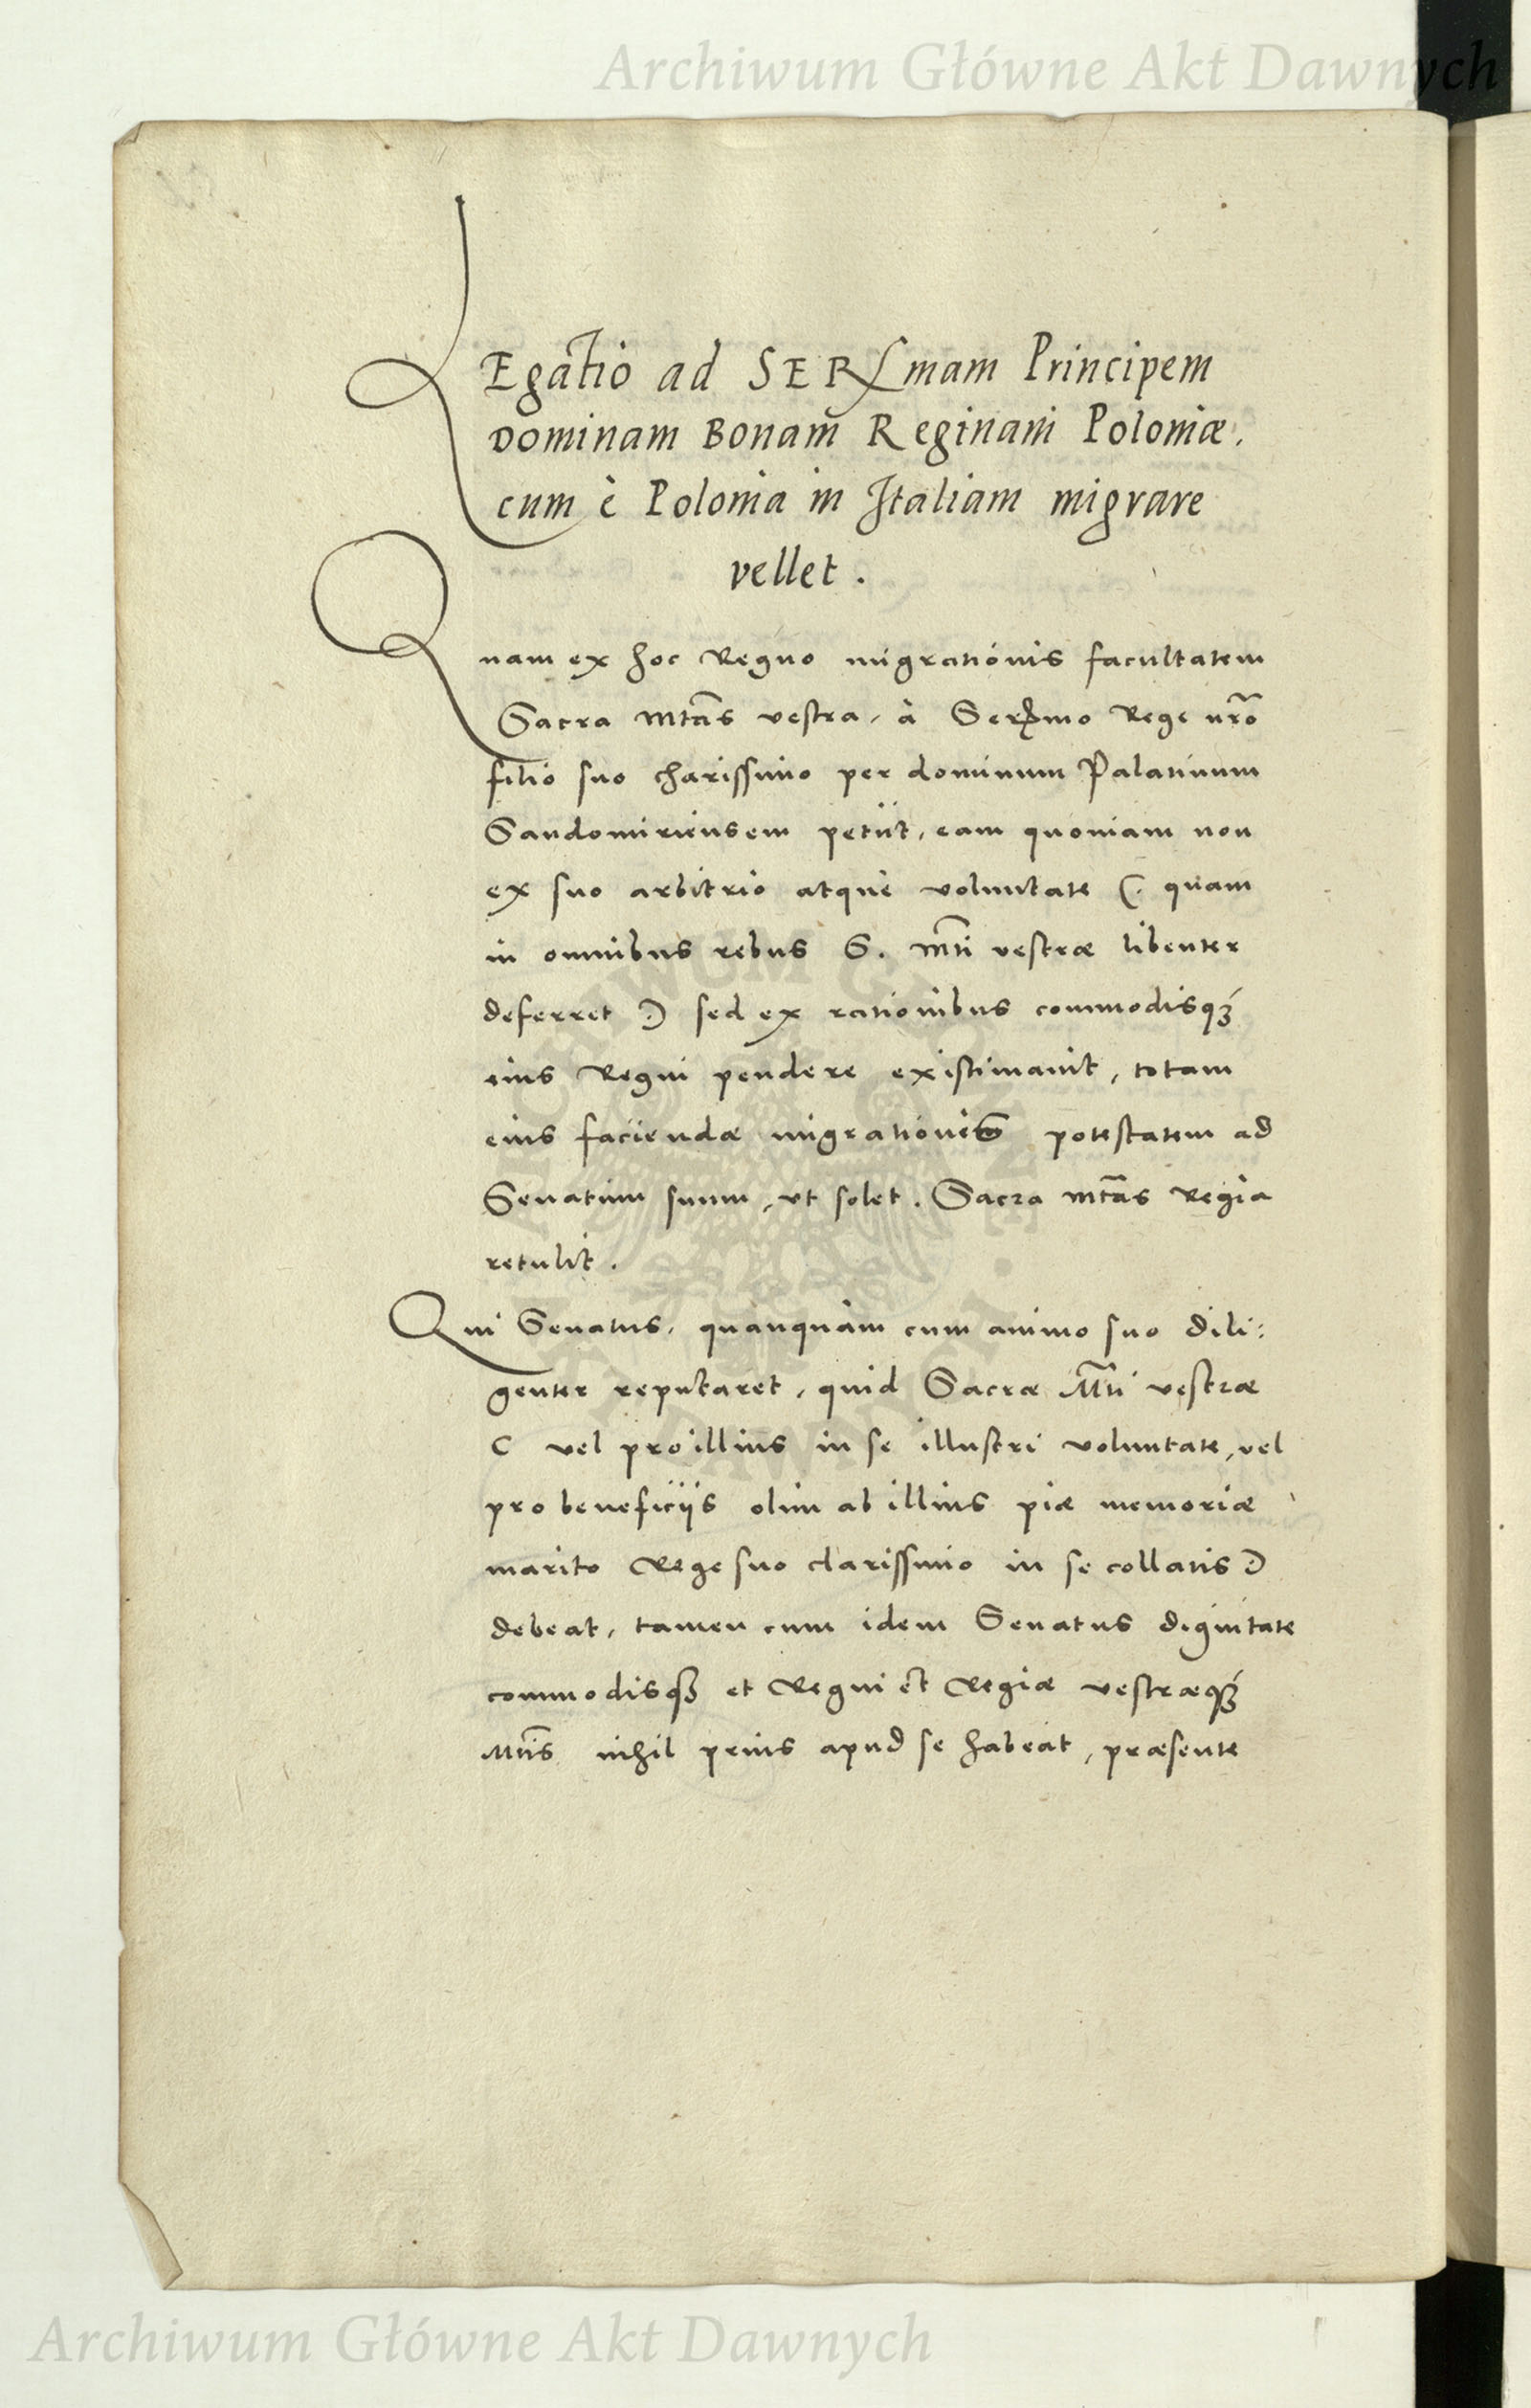 Archiwum Główne Akt Dawnych
LEgatio ad SERmam Principem
Dominam Bonam Reginam Poloniæ.
cum è Polonia in Italiam migrare
vellet.
Quam ex hoc Regno migrationis facultatem
Sacra Mtas vestra, à Sermo Rege nro
filio suo charissimo per dominum Palatinum
Sandomiriensem petiit, eam quoniam non
ex suo arbitrio atque voluntate (. quam
in omnibus rebus S. Mti vestræ libenter
deferret .) sed ex rationibus commodisq3
eius Regni pendere existimavit, totam
eius faciendæ migrationis potestatem ad
Senatum suum, ut solet. Sacra Mtas Regia
retulit.
Qui Senatus, quanquàm cum animo suo dili:
genter reputaret, quid Sacræ Mti vestræ
( vel pro illius in se illustri voluntate, vel
pro beneficijs olim ab illius piæ memoriæ
marito Rege suo clarissimo in se collatis )
debeat, tamen cum idem Senatus dignitate
commodisq3 et Regni et Regiæ vestræq3
Mtis nihil prius apud se habeat, præsente
Archiwum Główne Akt Dawnych